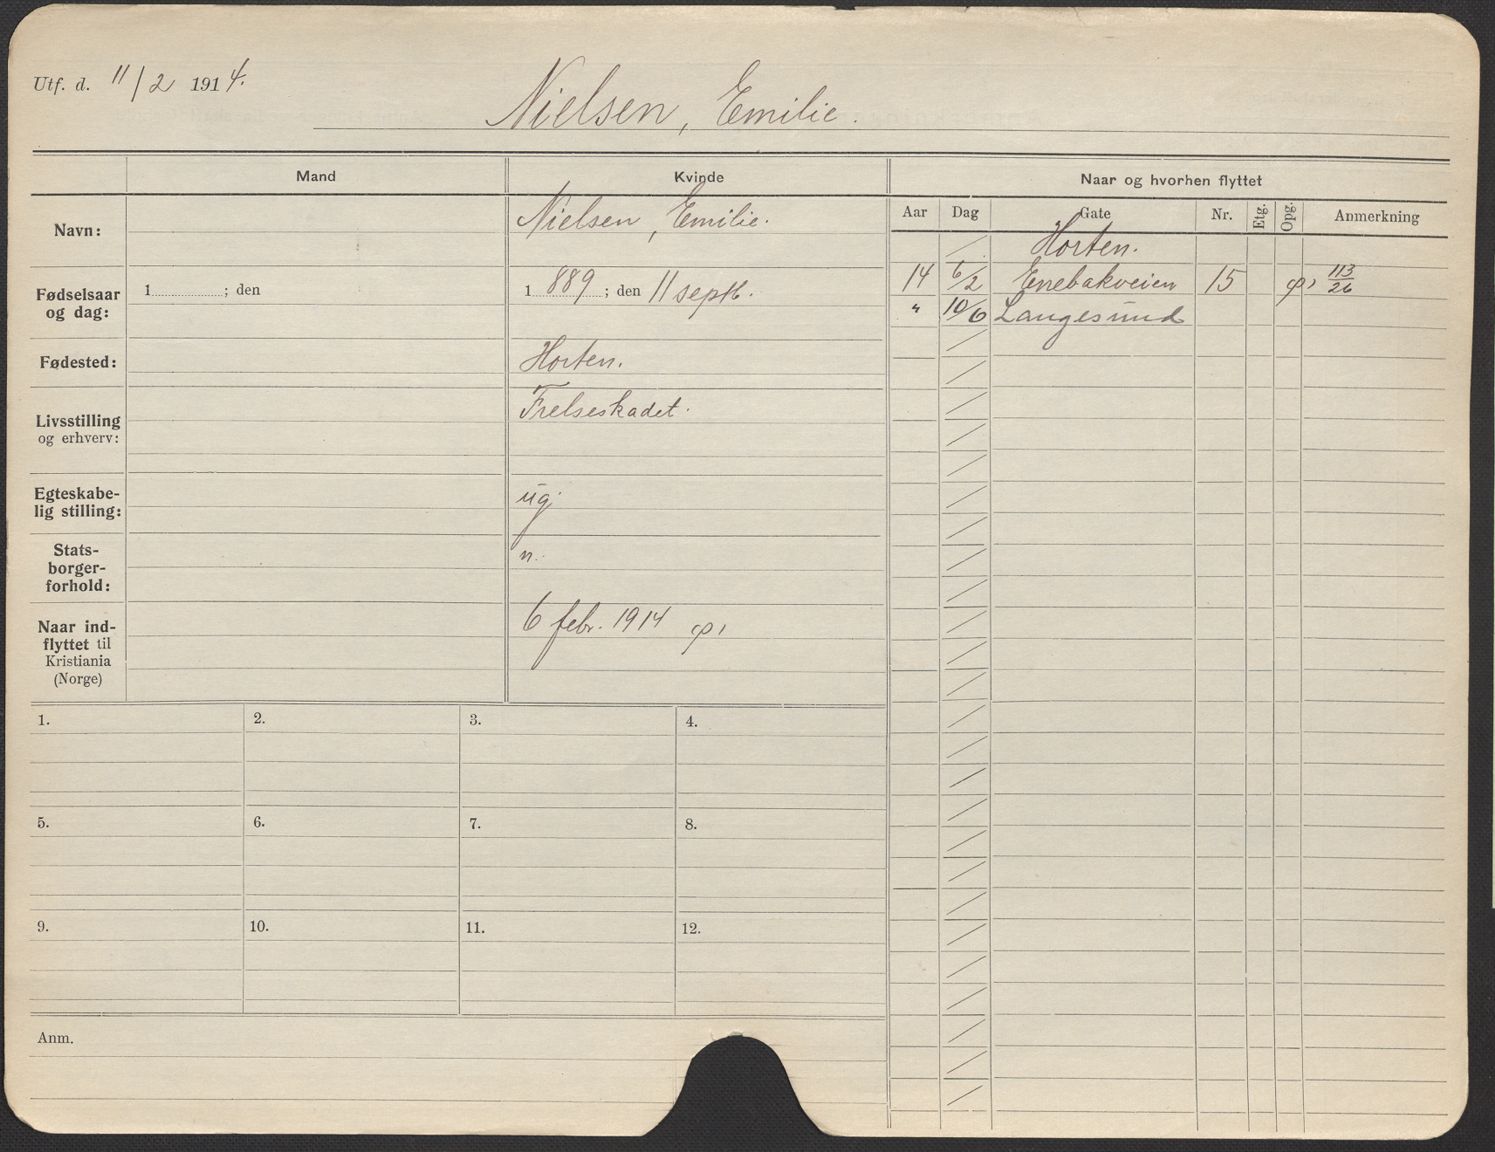 Utf. d. 11/2 1914.
Nielsen, Emilie.
Mand
Kvinde
Naar og hvorhen flyttet
Aar Dag Gate Nr. Etg. Opg. Anmerkning
Navn:
Nielsen, Emilie.
Fødselsaar
og dag:
1 ; den
1 889 ; den 11 septb.
Fødested:
Horten.
Livsstilling
og erhverv:
Frelseskadet.
Egteskabe-
lig stilling:
ug.
Stats-
borger-
forhold:
n.
Naar ind-
flyttet til
Kristiania
(Norge)
6 febr. 1914
Horten.
14 6/2 Enebakveien 15 113/26
" 10/6 Langesund
1. 2. 3. 4.
5. 6. 7. 8.
9. 10. 11. 12.
Anm.